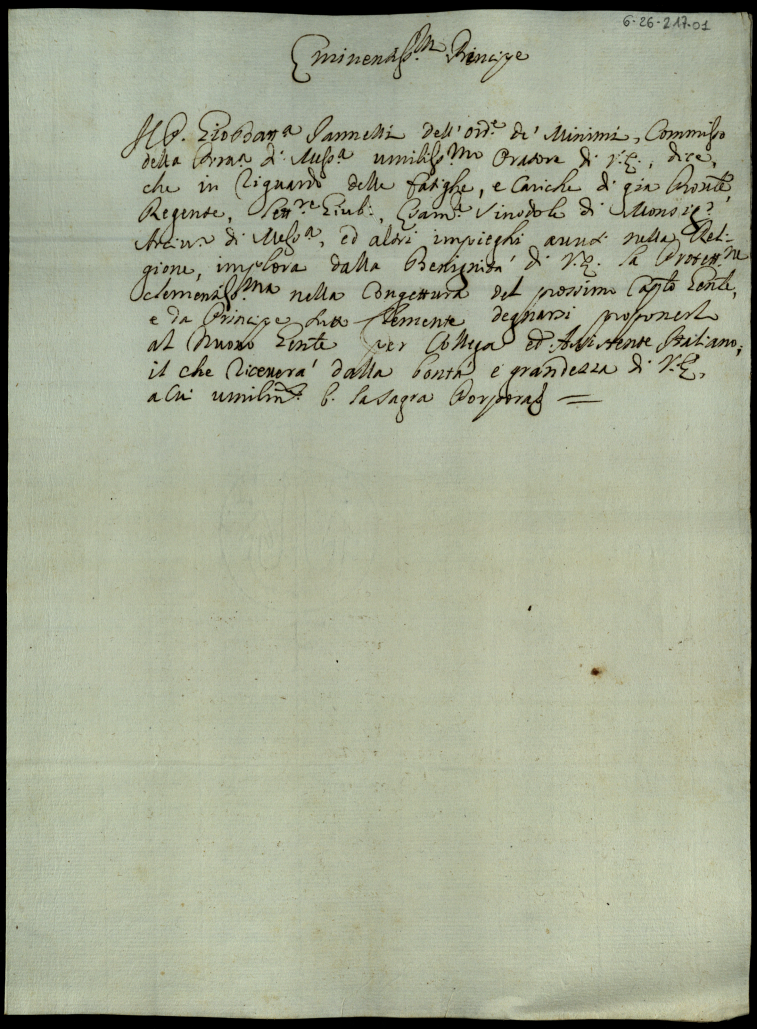 6-26-217-01
Eminentiss.mo Principe
Il P. Gio:Batt.a Iannelli dell'Ord.e de' Minimi, Commisso
della Prov.a di Mess.a umiliss.mo Oratore di V.E., dice,
che in riguardo delle fatighe, e Cariche di già
Reggente, Lett.re Giub:, Esam.e Sinodale di Monsig.r
Arciv.o di Mess.a, ed altri impieghi avuti nella Reli-
gione, implora dalla Benignità di V.E. la Protett.ne
clementiss.ma nella Congettura del prossimo Cap.lo Gen.le,
e da Principe tutto Clemente degnarsi proponerlo
al Nuovo Gen.le per Collega ed Assistente Italiano;
il che riceverà dalla bontà e grandezza di V.E.
a cui umilm.te b. la Sagra Porpora